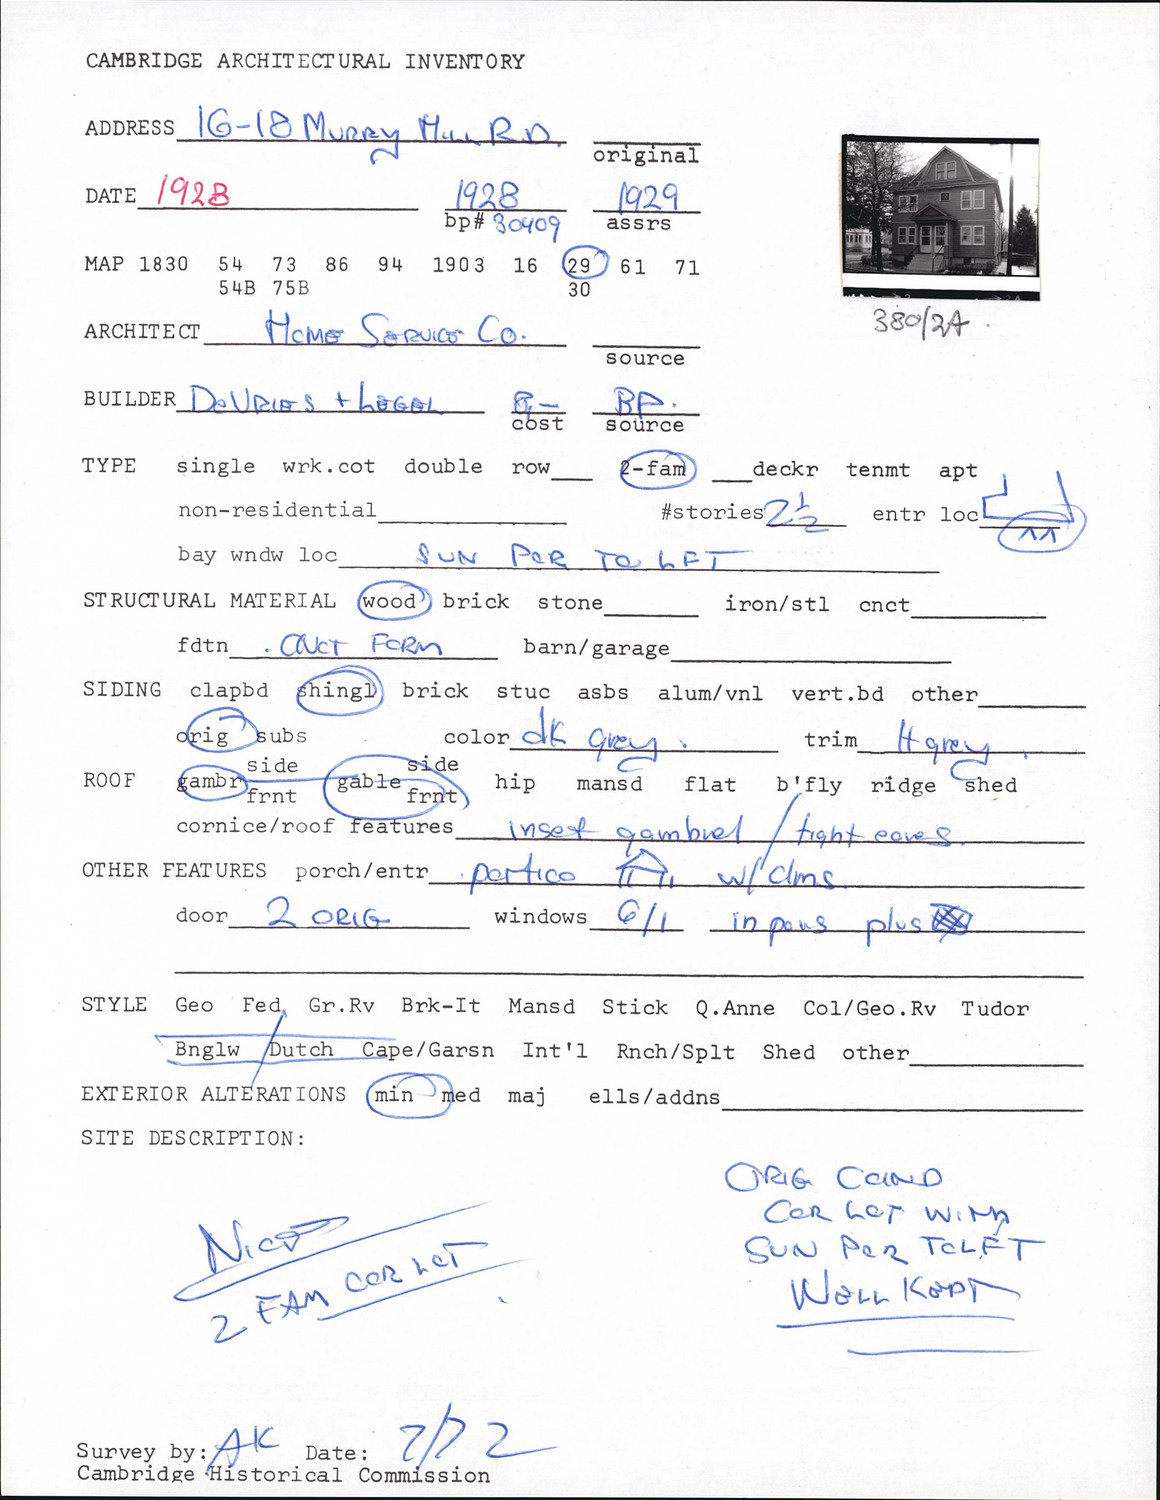 CAMBRIDGE ARCHITECTURAL INVENTORY
ADDRESS 16-18 MURRY HILL RD. original
DATE 1928 1928 1929
bp# 30409 assrs
MAP 1830 54 73 86 94 1903 16 29 61 71
54B 75B 30
380/2A
ARCHITECT HOME SERVICE CO.
source
BUILDER DeVRIES + LEGEL 8- BP.
cost source
TYPE single wrk.cot double row 2-fam deckr tenmt apt
non-residential #stories 2 1/2 entr loc
bay wndw loc SUN POR TO LFT
STRUCTURAL MATERIAL wood brick stone iron/stl cnct
fdtn . CNCT FORM barn/garage
SIDING clapbd shingl brick stuc asbs alum/vnl vert.bd other
orig subs color dk grey. trim lt grey.
ROOF gambr side frnt gable side frnt hip mansd flat b'fly ridge shed
cornice/roof features inset gambrel / tight eaves.
OTHER FEATURES porch/entr portico w/clms.
door 2 ORIG windows 6/1 in pairs plus
STYLE Geo Fed Gr.Rv Brk-It Mansd Stick Q.Anne Col/Geo.Rv Tudor
Bnglw Dutch Cape/Garsn Int'l Rnch/Splt Shed other
EXTERIOR ALTERATIONS min med maj ells/addns
SITE DESCRIPTION:
ORIG COND
COR LOT WITH
SUN POR TO LFT
WELL KEPT
NICE
2 FAM COR LOT
Survey by: AK Date: 7/72
Cambridge Historical Commission